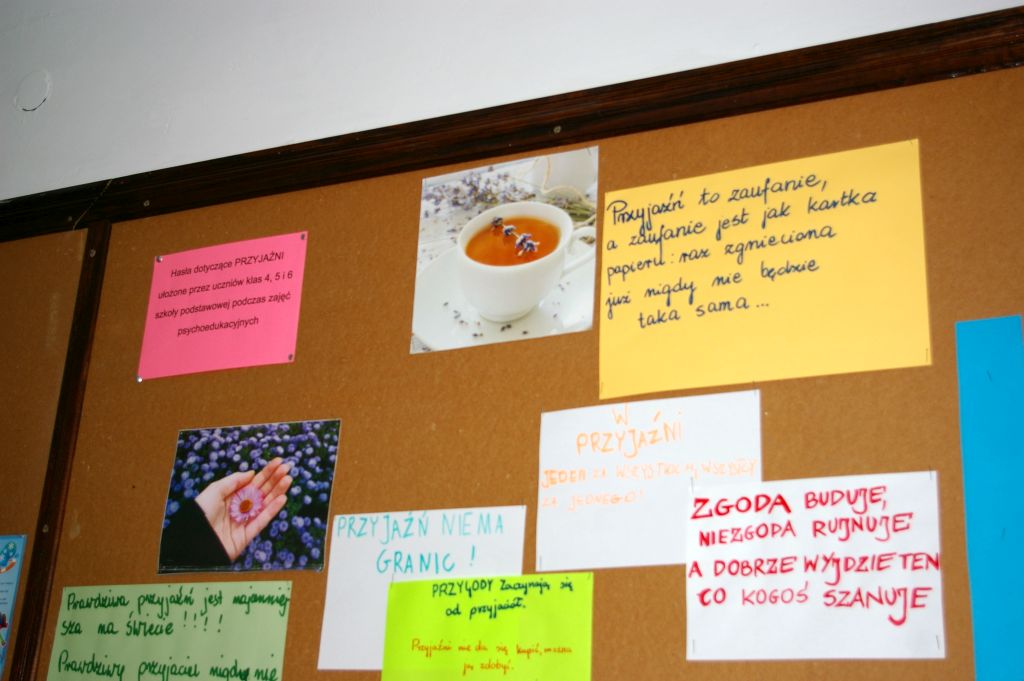 Hasła dotyczące PRZYJAŹNI
ułożone przez uczniów klas 4, 5 i 6
szkoły podstawowej podczas zajęć
psychoedukacyjnych
Przyjaźń to zaufanie,
a zaufanie jest jak kartka
papieru: raz zgnieciona
już nigdy nie będzie
taka sama...
W
PRZYJAŹNI
JEDEN ZA WSZYSTKICH, WSZYSCY
ZA JEDNEGO!
ZGODA BUDUJE,
NIEZGODA RUJNUJE
A DOBRZE WYJDZIE TEN
CO KOGOŚ SZANUJE
PRZYJAŹŃ NIE MA
GRANIC!
PRZYGODY Zaczynają się
od przyjaźń.
Przyjaźni nie da się kupić, można
ją zdobyć.
Prawdziwa przyjaźń jest najcenniej
sza na świecie!!!!
Prawdziwy przyjaciel nigdy nie